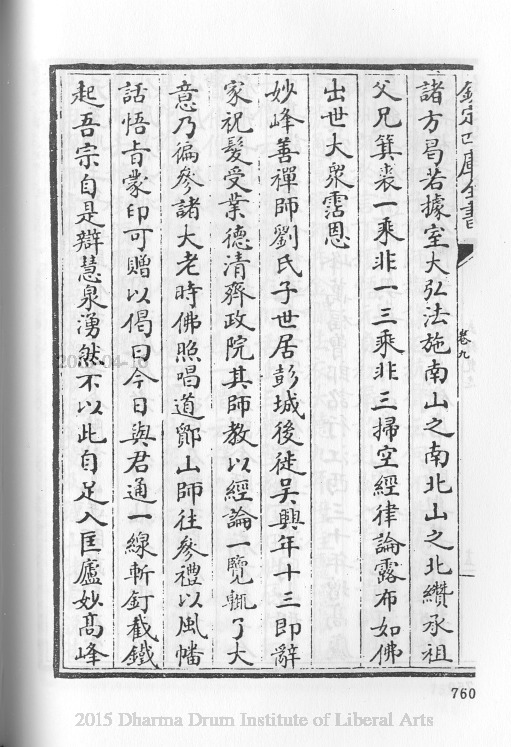 欽定四庫全書
卷九
諸方曷若據室大弘法施南山之南北山之北纘承祖
父兄箕裘一乘非一三乘非三掃空經律論露布如佛
出世大衆霑恩
妙峰善禪師劉氏子世居彭城後徙吳興年十三即辭
家祝髮受業德清齊政院其師教以經論一覽輒了大
意乃徧參諸大老時佛照唱道鄮山師往參禮以風幡
話悟㫖蒙印可贈以偈曰今日與君通一線斬釘截鐵
起吾宗自是辯慧泉湧然不以此自足入匡廬妙髙峰
760
2015 Dharma Drum Institute of Liberal Arts